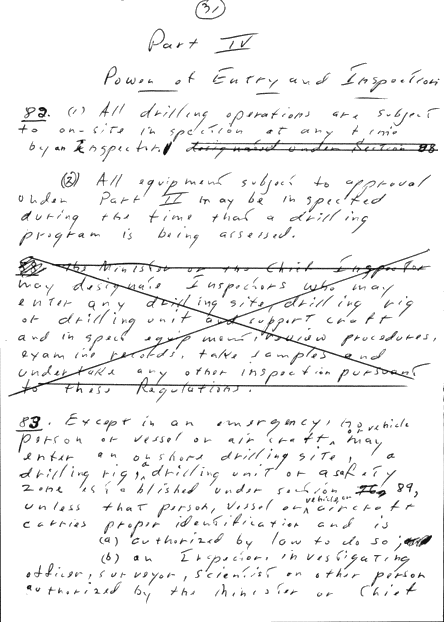 31
Part IV
Power of Entry and Inspection
82. (1) All drilling operations are subject
to on-site inspection at any time
by an Inspector designated under Section 88
(2) All equipment subject to approval
under Part II may be inspected
during the time that a drilling
program is being assessed.
the Minister or the Chief Inspector
may designate Inspectors who may
enter any drilling site, drilling rig
or drilling unit and support craft
and inspect equipment review procedures,
examine records, take samples and
undertake any other inspection pursuant
to these Regulations.
83. Except in an emergency, no vehicle
person or vessel or aircraft may
enter an onshore drilling site, a
drilling rig, a drilling unit or a safety
zone established under section 89,
unless that person, vessel or vehicle or aircraft
carries proper identification and is
(a) authorized by law to do so;
(b) an Inspector, investigating
officer, surveyor, scientist or other person
authorized by the Minister or Chief